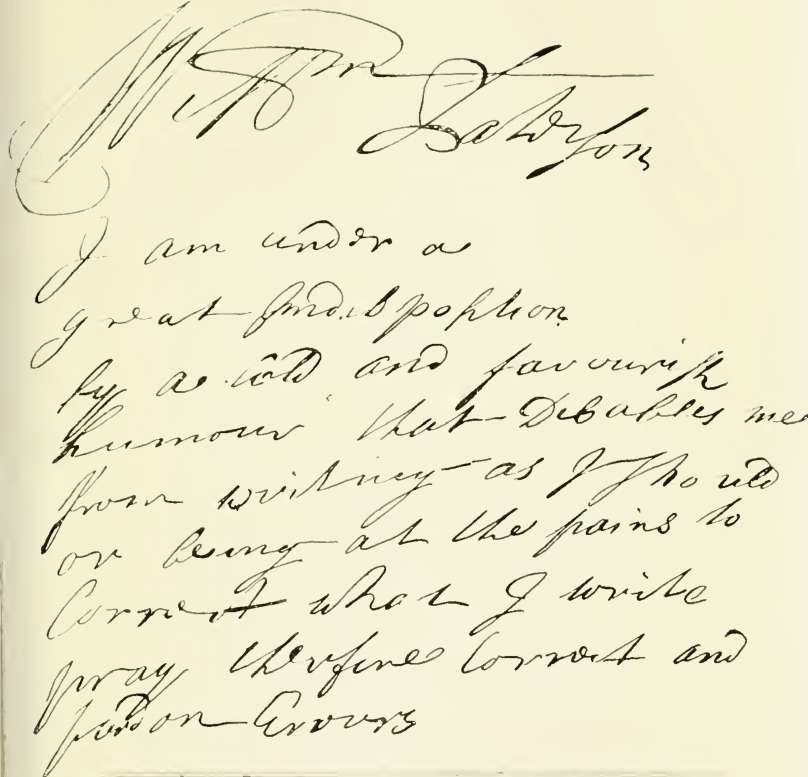 Will^m
Paterson
I am under a
great Indisposition
by a cold and favourish
humour that Disables me
from writing as I should
or being at the pains to
Correct what I write
pray therfore Correct and
pardon Errours